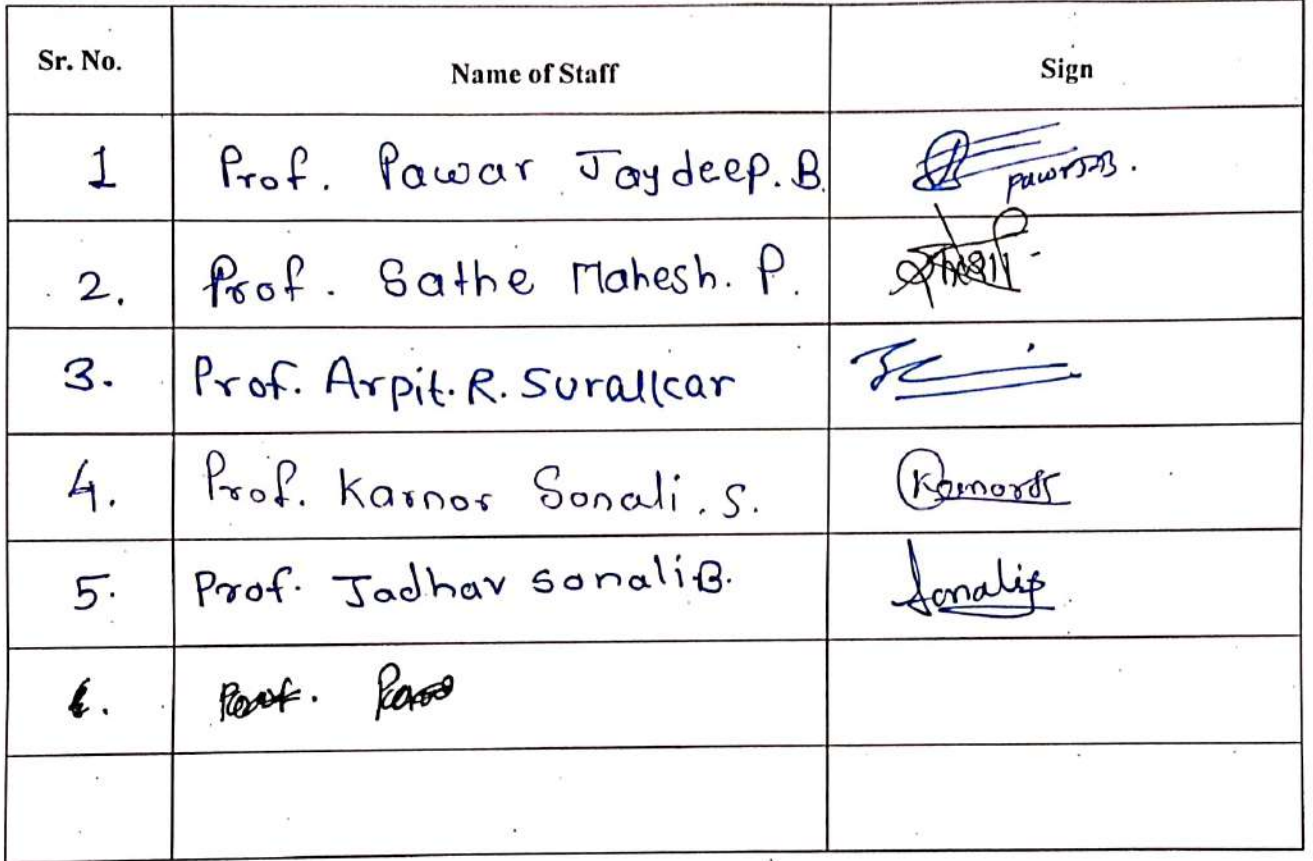 Sr. No. Name of Staff Sign
1 Prof. Pawar Jaydeep. B.
2. Prof. Sathe Mahesh. P.
3. Prof. Arpit. R. Suralkar
4. Prof. Karnor Sonali. S.
5. Prof. Jadhav sonali B. Sonali